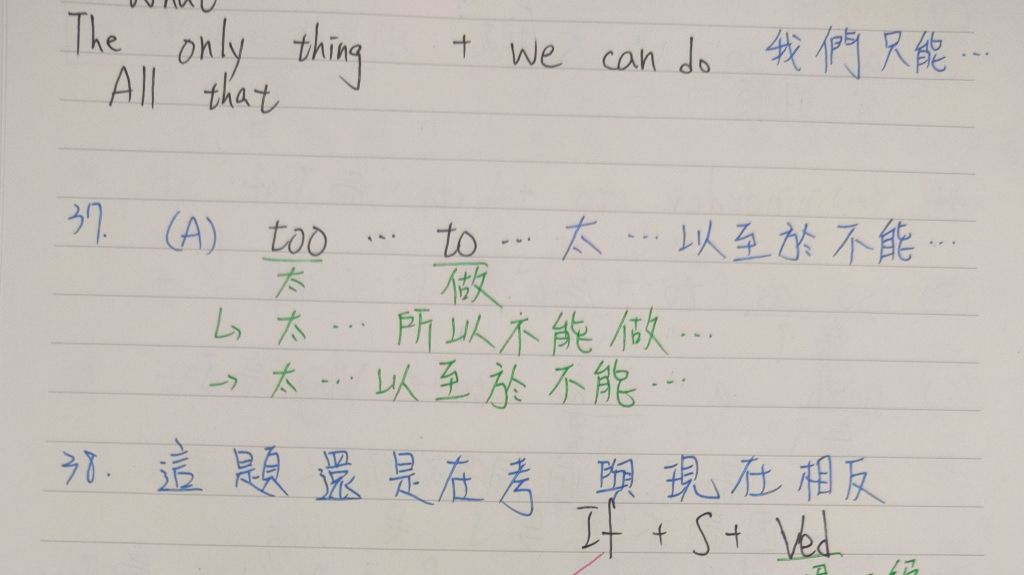 What
The only thing + we can do 我們只能…
All that
37. (A) too … to … 太 … 以至於不能…
太 做
↳ 太 … 所以不能做…
→ 太 … 以至於不能…
38. 這題還是在考 與現在相反
If + S + Ved